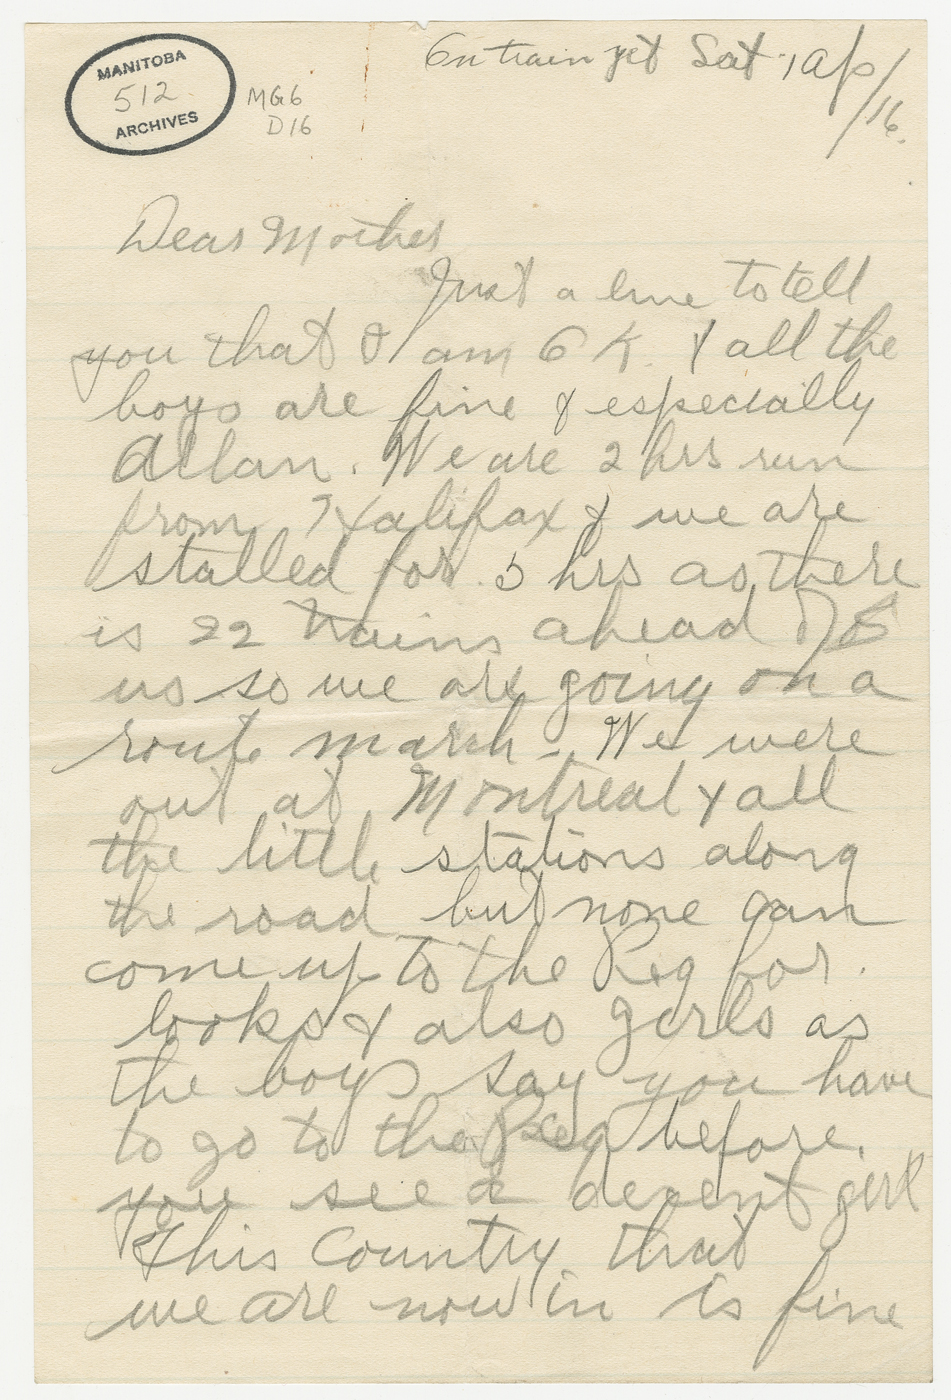 MANITOBA
512.
ARCHIVES
MG6
D16
On train yet Sat. 1 Ap/
/16.
Dear Mother
Just a line to tell
you that I am O K. & all the
boys are fine & especially
Allan. We are 2 hrs run
from Halifax & we are
stalled for 5 hrs as there
is 22 trains ahead of
us so we are going on a
route march -. We were
out at Montreal & all
the little stations along
the road but none can
come up to the Peg for.
looks & also girls as
the boys say you have
to go to the Peg before.
you see a decent girl
This Country that
we are now in is fine